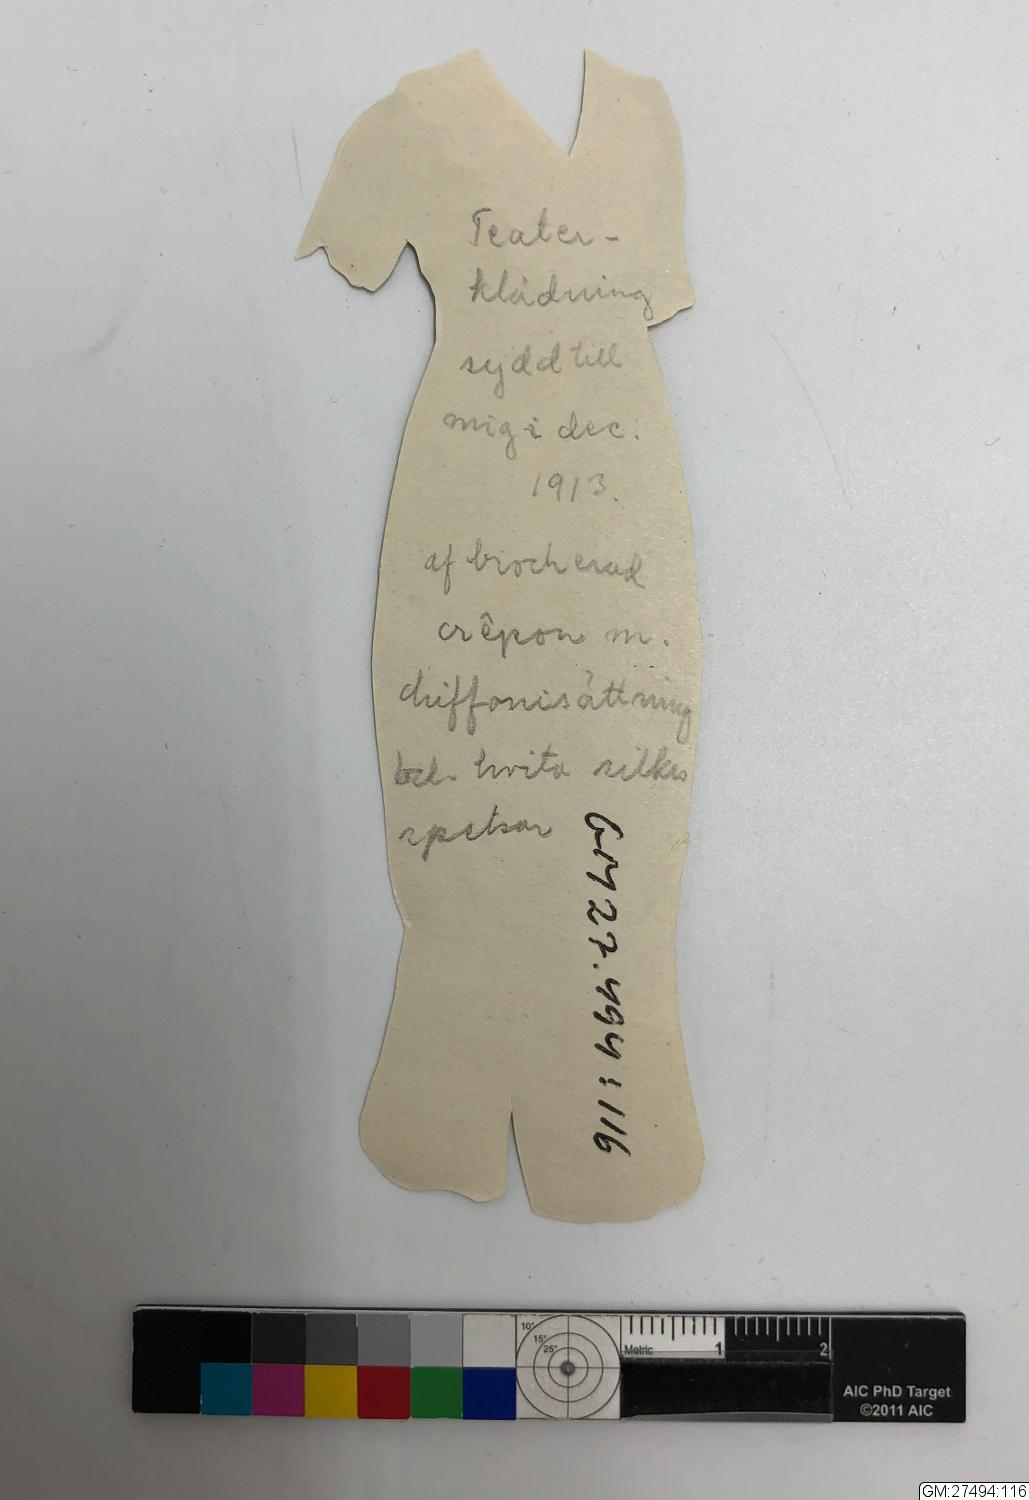 Teater-
klädning
sydd till
mig i dec.
1913.
af brocherad
crêpon m.
chiffonisättning
och hvita silkes
spetsar
GM 27.494:116
10°
15°
25°
Metric
1
2
AIC PhD Target
©2011 AIC
GM:27494:116